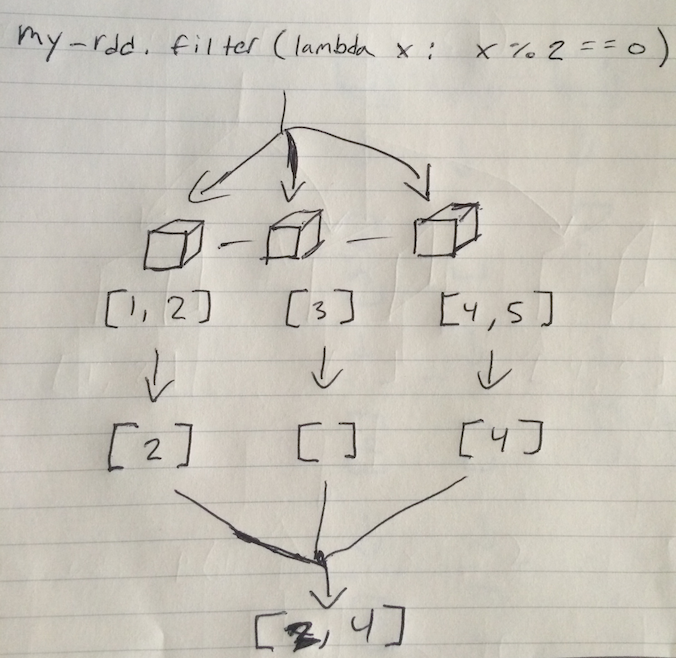 my-rdd. filter (lambda x: x % 2 == 0)
[1, 2] [3] [4, 5]
[2] [ ] [4]
[2, 4]